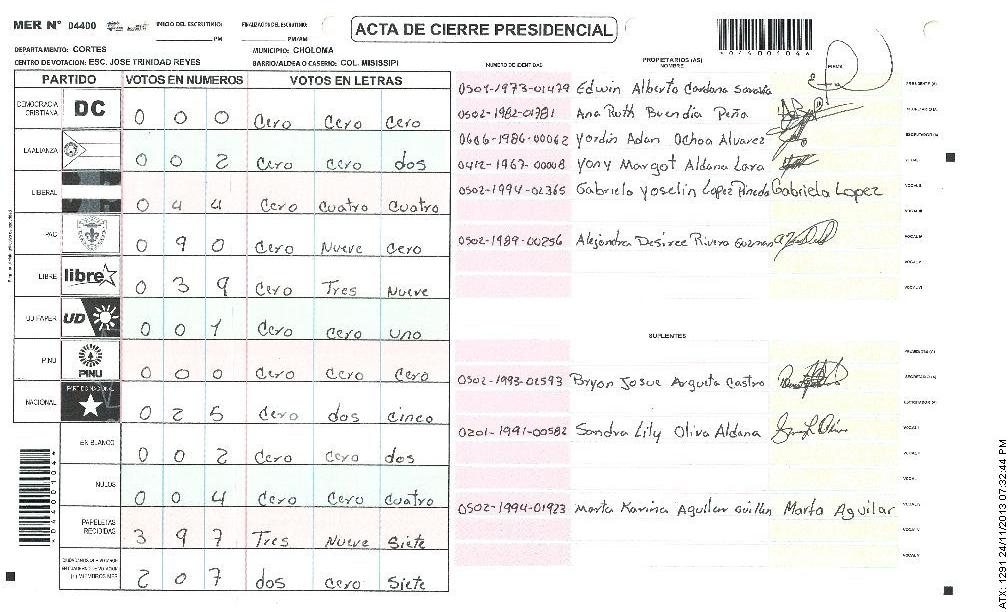 MER Nº 04400 INICIO DEL ESCRUTINIO: ____PM FINALIZACION DEL ESCRUTINIO: ____PM/PM
ACTA DE CIERRE PRESIDENCIAL
DEPARTAMENTO: CORTES MUNICIPIO: CHOLOMA
CENTRO DE VOTACION: ESC. JOSE TRINIDAD REYES BARRIO/ALDEA O CASERIO: COL. MISISSIPI
PARTIDO VOTOS EN NUMEROS VOTOS EN LETRAS
DEMOCRACIA CRISTIANA DC 0 0 0 Cero Cero Cero
LA ALIANZA 0 0 2 Cero Cero dos
LIBERAL 0 4 4 Cero Cuatro Cuatro
PAC 0 9 0 Cero Nueve Cero
LIBRE libre 0 3 9 Cero Tres Nueve
UD FAPER UD 0 0 1 Cero Cero uno
PINU PINU 0 0 0 Cero Cero Cero
NACIONAL PARTIDO NACIONAL 0 2 5 Cero dos cinco
EN BLANCO 0 0 2 Cero Cero dos
NULOS 0 0 4 Cero Cero Cuatro
PAPELETAS RECIBIDAS 3 9 7 Tres Nueve Siete
2 0 7 dos Cero Siete
NUMERO DE IDENTIDAD PROPIETARIOS (AS) NOMBRE FIRMA
0501-1973-01479 Edwin Alberto Cardona Saravia PRESIDENTE (A)
0502-1982-01781 Ana Ruth Buendia Peña
0606-1986-00062 Yordin Adan Ochoa Alvarez ESCRUTADOR (A)
0412-1967-00008 Yony Margot Aldana Lara VOCAL I
0502-1994-02365 Gabriela Yoselin Lopez Pineda Gabriela Lopez VOCAL II
VOCAL III
0502-1989-00256 Alejandra Desiree Rivera Guzman VOCAL IV
VOCAL V
VOCAL VI
SUPLENTES
PRESIDENTE (A)
0502-1993-02593 Bryon Josue Argueta Castro SECRETARIO (A)
ESCRUTADOR (A)
0201-1991-00582 Sandra Lily Oliva Aldana VOCAL I
0502-1994-01923 Marta Karina Aguilar Guillen Marta Aguilar
*04400104*
ATX: 1291 24/11/2013 07:32:44 PM